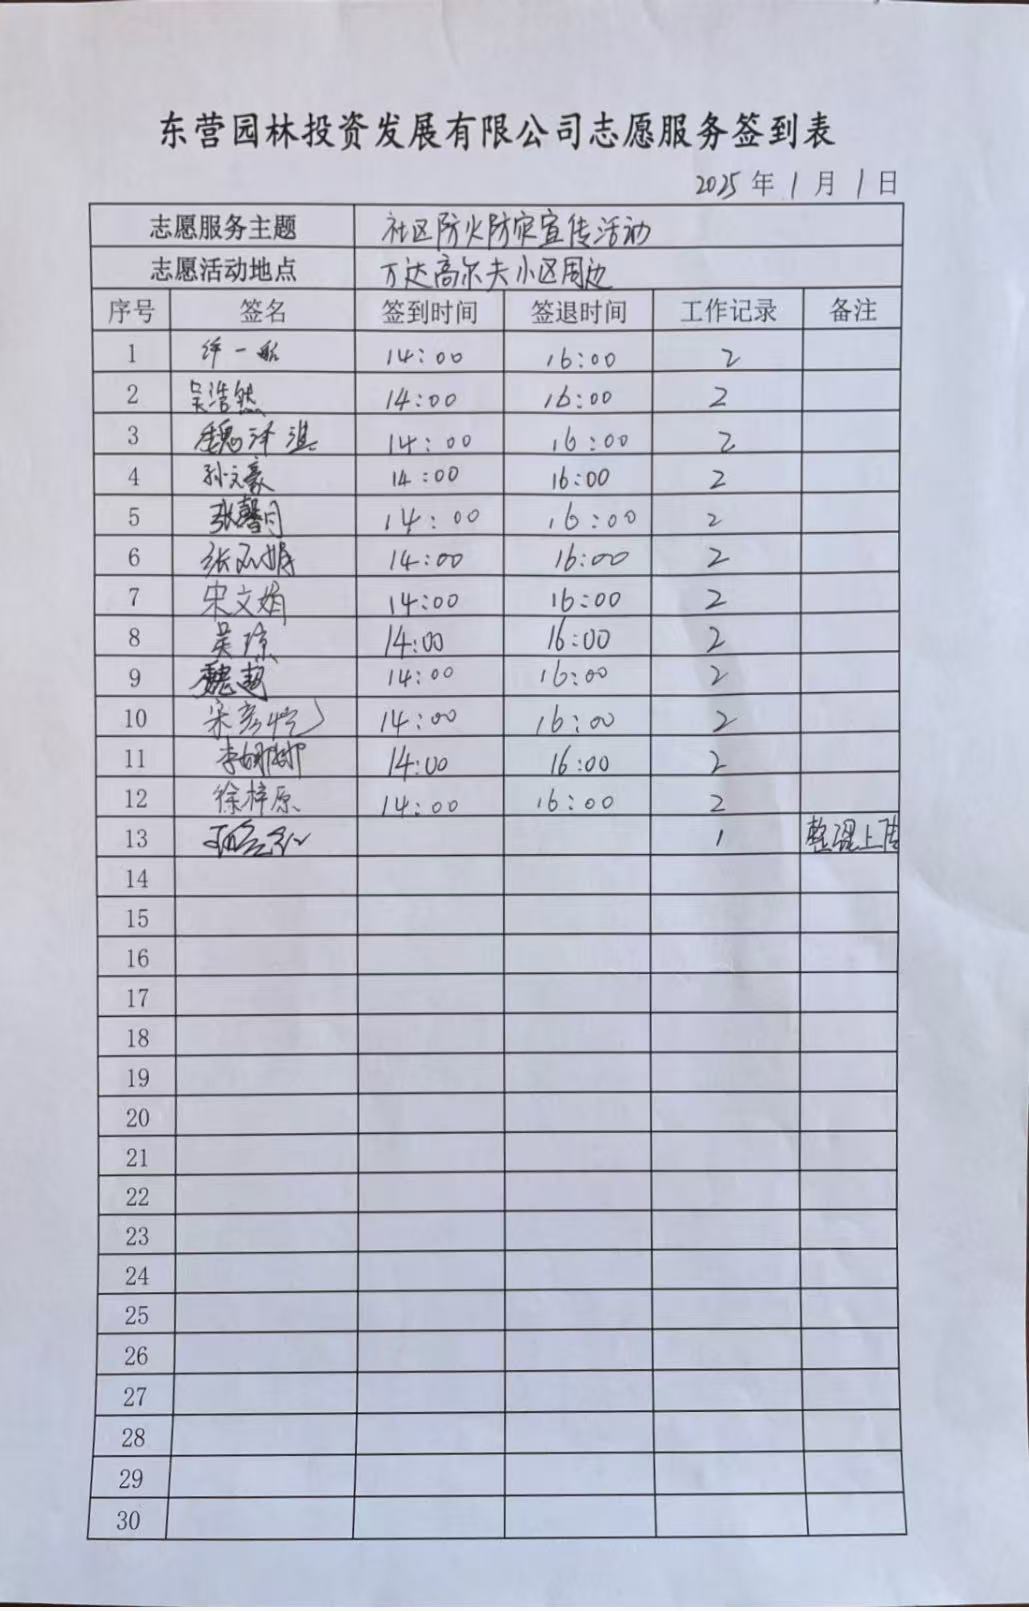 东营园林投资发展有限公司志愿服务签到表
2025 年 1 月 1 日
志愿服务主题 社区防火防灾宣传活动
志愿活动地点 万达高尔夫小区周边
序号 签名 签到时间 签退时间 工作记录 备注
1 一 14:00 16:00 2
2 吴浩然 14:00 16:00 2
3 魏泽淇 14:00 16:00 2
4 孙文豪 14:00 16:00 2
5 张馨月 14:00 16:00 2
6 张 娟 14:00 16:00 2
7 宋文娟 14:00 16:00 2
8 吴琼 14:00 16:00 2
9 魏超 14:00 16:00 2
10 宋彦 14:00 16:00 2
11 李娜娜 14:00 16:00 2
12 徐梓原 14:00 16:00 2
13 1 整理上传
14
15
16
17
18
19
20
21
22
23
24
25
26
27
28
29
30